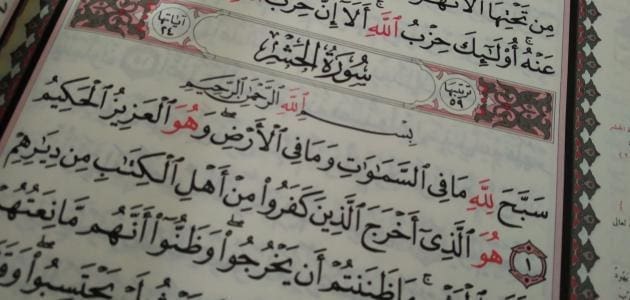 مِن تَحْتِهَا ٱلْأَنْهَـٰرُ
عَنْهُ ۚ أُو۟لَـٰٓئِكَ حِزْبُ ٱللَّهِ ۚ أَلَآ إِنَّ حِزْبَ
ترتيبها ٥٩ سُورَةُ الْحَشْرِ آياتها ٢٤
بِسْمِ ٱللَّهِ ٱلرَّحْمَـٰنِ ٱلرَّحِيمِ
سَبَّحَ لِلَّهِ مَا فِى ٱلسَّمَـٰوَٰتِ وَمَا فِى ٱلْأَرْضِ ۖ وَهُوَ ٱلْعَزِيزُ ٱلْحَكِيمُ
١ هُوَ ٱلَّذِىٓ أَخْرَجَ ٱلَّذِينَ كَفَرُوا۟ مِنْ أَهْلِ ٱلْكِتَـٰبِ مِن دِيَـٰرِهِمْ
مَا ظَنَنتُمْ أَن يَخْرُجُوا۟ ۖ وَظَنُّوٓا۟ أَنَّهُم مَّانِعَتُهُمْ
حَيْثُ لَمْ يَحْتَسِبُوا۟ ۖ